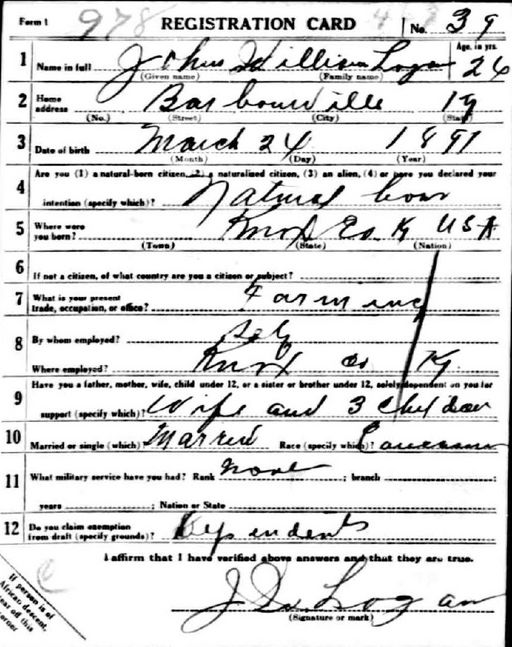 Form 1 978 REGISTRATION CARD No. 39
1 Name in full John William Logan Age, in yrs. 26
(Given name) (Family name)
2 Home address Barbourville Ky
(No.) (Street) (City) (State)
3 Date of birth March 24 1891
(Month) (Day) (Year)
4 Are you (1) a natural-born citizen, (2) a naturalized citizen, (3) an alien, (4) or have you declared your
intention (specify which)? Natural born
5 Where were you born? Knox Co. K USA
(Town) (State) (Nation)
6 If not a citizen, of what country are you a citizen or subject?
7 What is your present trade, occupation, or office? Farming
8 By whom employed? Self
Where employed? Knox Co Ky
9 Have you a father, mother, wife, child under 12, or a sister or brother under 12, solely dependent on you for
support (specify which)? Wife and 3 Children
10 Married or single (which)? Married Race (specify which)? Caucasian
11 What military service have you had? Rank None ; branch ;
years ; Nation or State
12 Do you claim exemption from draft (specify grounds)? Dependents
I affirm that I have verified above answers and that they are true.
J W Logan
(Signature or mark)
If person is of
African descent,
tear off this
corner